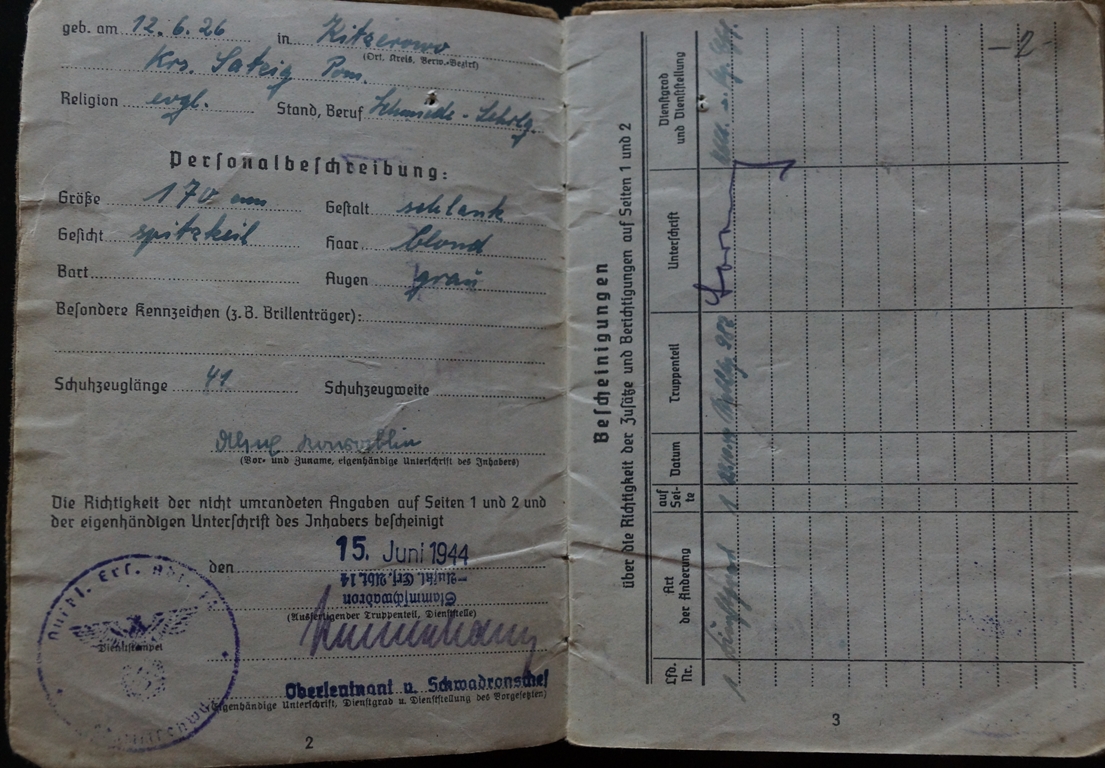 geb. am 12.6.26 in Kitzerow
(Ort, Kreis, Verw.-Bezirk)
Krs. Satzig Pom.
Religion evgl. Stand, Beruf Schmiede-Lehrlg.
Personalbeschreibung:
Größe 170 cm Gestalt schlank
Gesicht spitzkeil Haar blond
Bart Augen grau
Besondere Kennzeichen (z. B. Brillenträger):
Schuhzeuglänge 41 Schuhzeugweite
(Vor- und Zuname, eigenhändige Unterschrift des Inhabers)
Die Richtigkeit der nicht umrandeten Angaben auf Seiten 1 und 2 und
der eigenhändigen Unterschrift des Inhabers bescheinigt
den 15. Juni 1944
Stammschwadron
Aufkl. Ers. Abt. 14
(Ausfertigender Truppenteil, Dienststelle)
Dienststempel
Oberleutnant u. Schwadronschef
(Eigenhändige Unterschrift, Dienstgrad u. Dienststellung des Vorgesetzten)
2
-2-
Bescheinigungen
über die Richtigkeit der Zusätze und Berichtigungen auf Seiten 1 und 2
Lfd. Nr.
Art der Änderung
auf Sei-te
Datum
Truppenteil
Unterschrift
Dienstgrad und Dienststellung
1
1
3